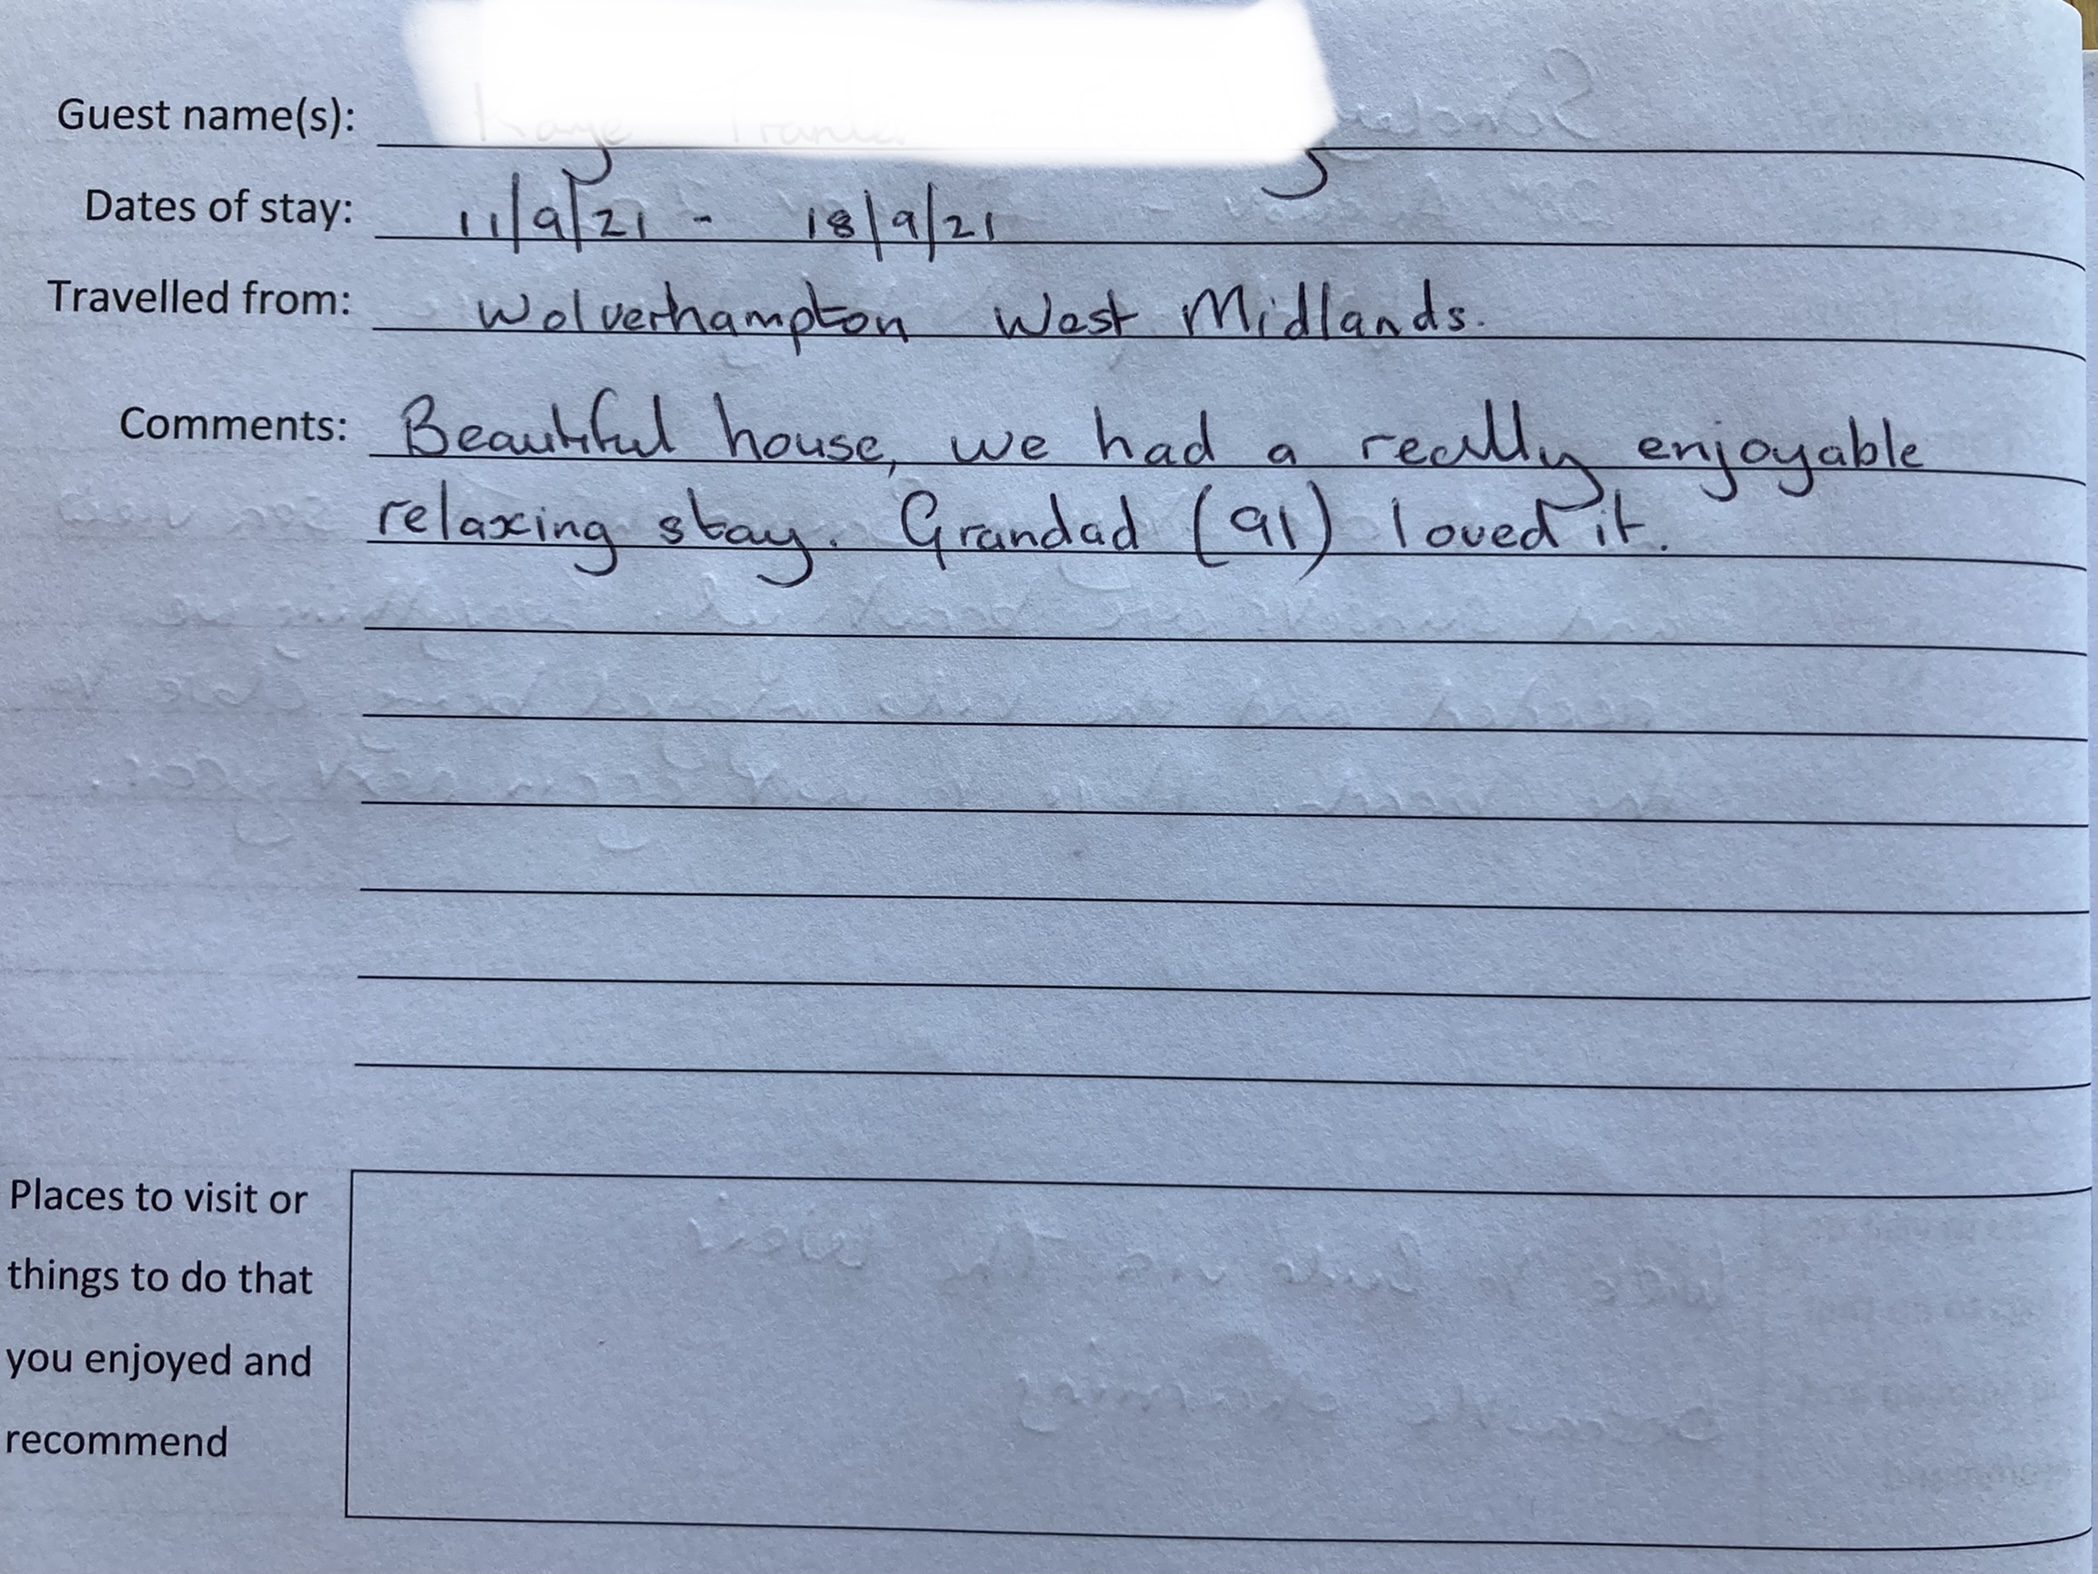 Guest name(s):
Dates of stay: 11/9/21 - 18/9/21
Travelled from: Wolverhampton West Midlands.
Comments: Beautiful house, we had a really enjoyable
relaxing stay. Grandad (91) loved it.
Places to visit or
things to do that
you enjoyed and
recommend